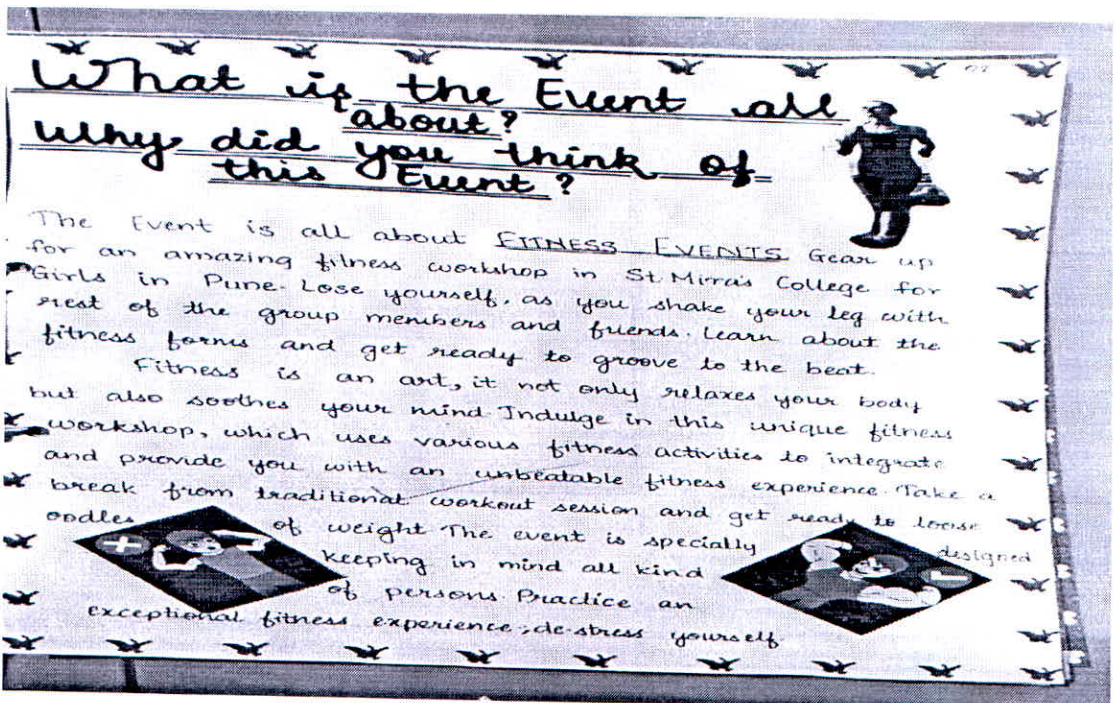 What is the Event all
about?
why did you think of
this Event?
The Event is all about FITNESS EVENTS Gear up
for an amazing fitness workshop in St. Mira's College for
Girls in Pune. Lose yourself, as you shake your leg with
rest of the group members and friends. Learn about the
fitness forms and get ready to groove to the beat.
Fitness is an art, it not only relaxes your body
but also soothes your mind. Indulge in this unique fitness
workshop, which uses various fitness activities to integrate
and provide you with an unbeatable fitness experience. Take a
break from traditional workout session and get ready to loose
oodles of weight The event is specially designed
keeping in mind all kind
of persons. Practice an
exceptional fitness experience, de-stress yourself.